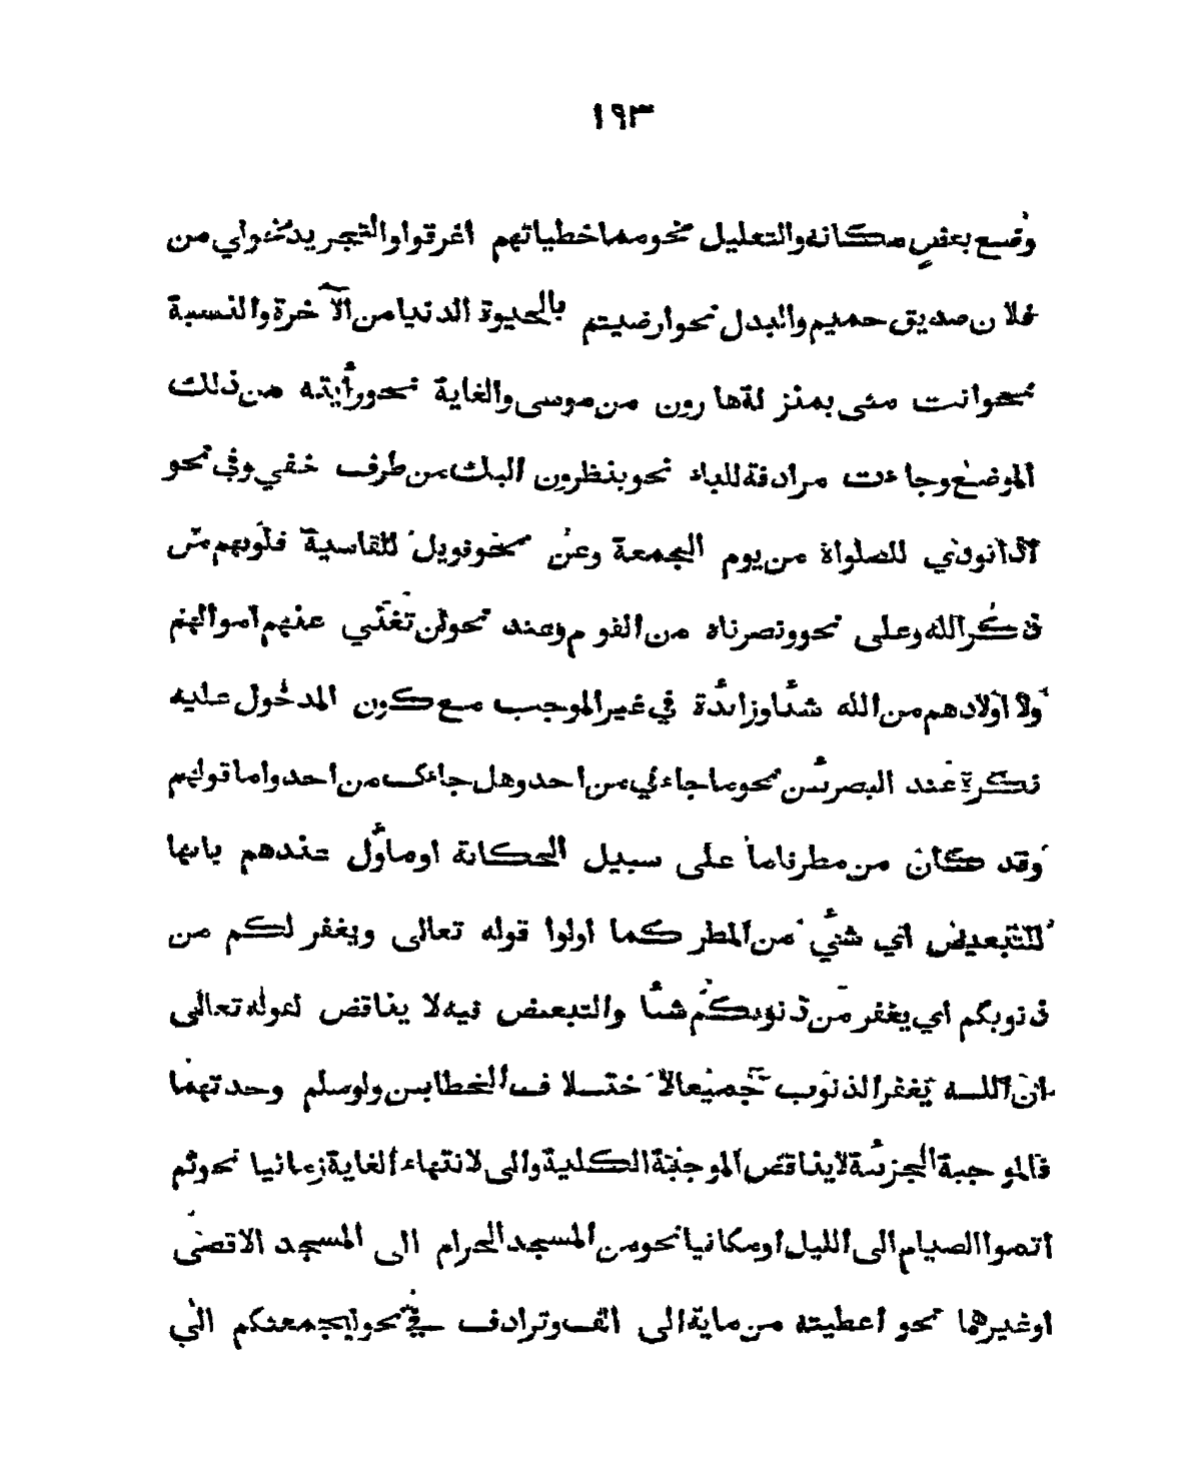 ١٩٣
وضع بعض مكانه والتعليل نحو مما خطياتهم اغرقوا والتجريد نحو لي من
فلان صديق حميم والبدل نحو ارضيتم بالحيوة الدنيا من الآخرة والنسبة
نحو انت مني بمنزلة هارون من موسى والغاية نحو رأيته من ذلك
الموضع وجاءت مرادفة للباء نحو ينظرون اليك من طرف خفي وفي نحو
اذا نودي للصلواة من يوم الجمعة وعن نحو فويل للقاسية قلوبهم من
ذكر الله وعلى نحو ونصرناه من القوم وعند نحو لن تغني عنهم اموالهم
ولا اولادهم من الله شئا وزائدة في غير الموجب مع كون المدخول عليه
نكرة عند البصرئين نحو ما جاءني من احد وهل جاءك من احد واما قولهم
وقد كان من مطر فاما على سبيل الحكاية او ماؤل عندهم بانها
للتبعيض اي شئي من المطر كما اولوا قوله تعالى ويغفر لكم من
ذنوبكم اي يغفر من ذنوبكم شئا والتبعيض فيه لا يناقض لقوله تعالى
ان اللـه يغفر الذنوب جميعا لاختلاف الخطابين ولو سلم وحدتهما
فالموجبة الجزئية لا يناقض الموجبة الكلية والى لانتهاء الغاية زمانيا نحو ثم
اتموا الصيام الى الليل او مكانيا نحو من المسجد الحرام الى المسجد الاقصى
او غيرهما نحو اعطيته من ماية الى الف وترادف في نحو ليجمعنكم الى